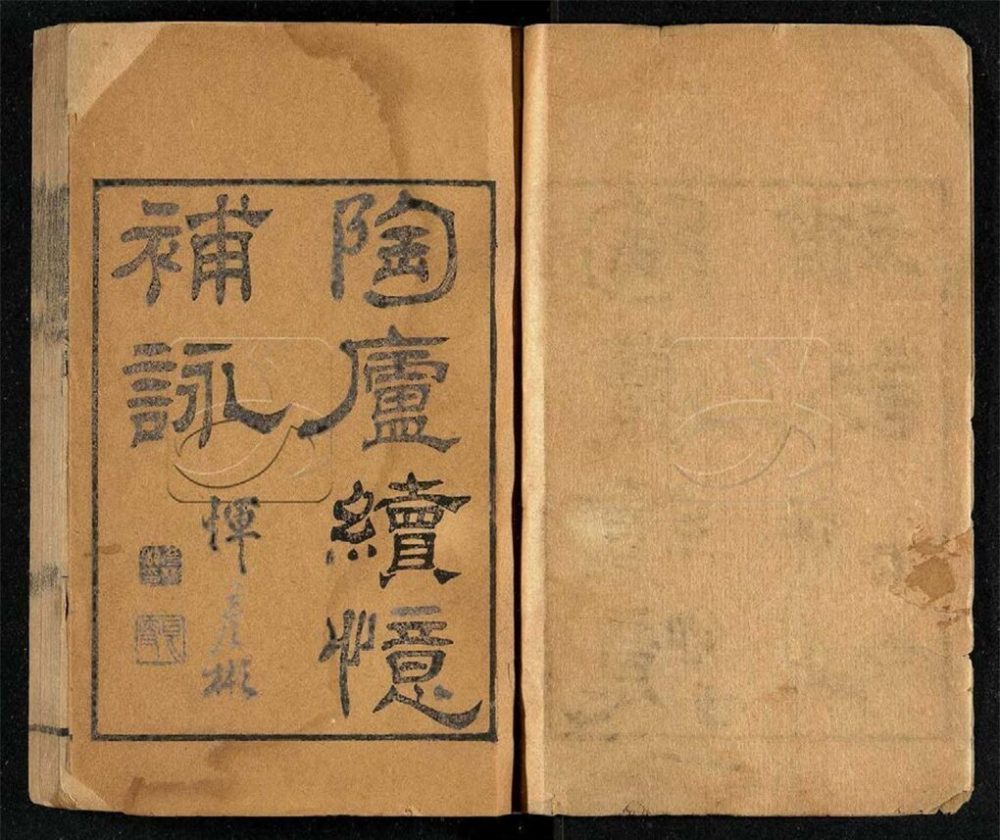 陶廬續憶
補詠
惲彥彬